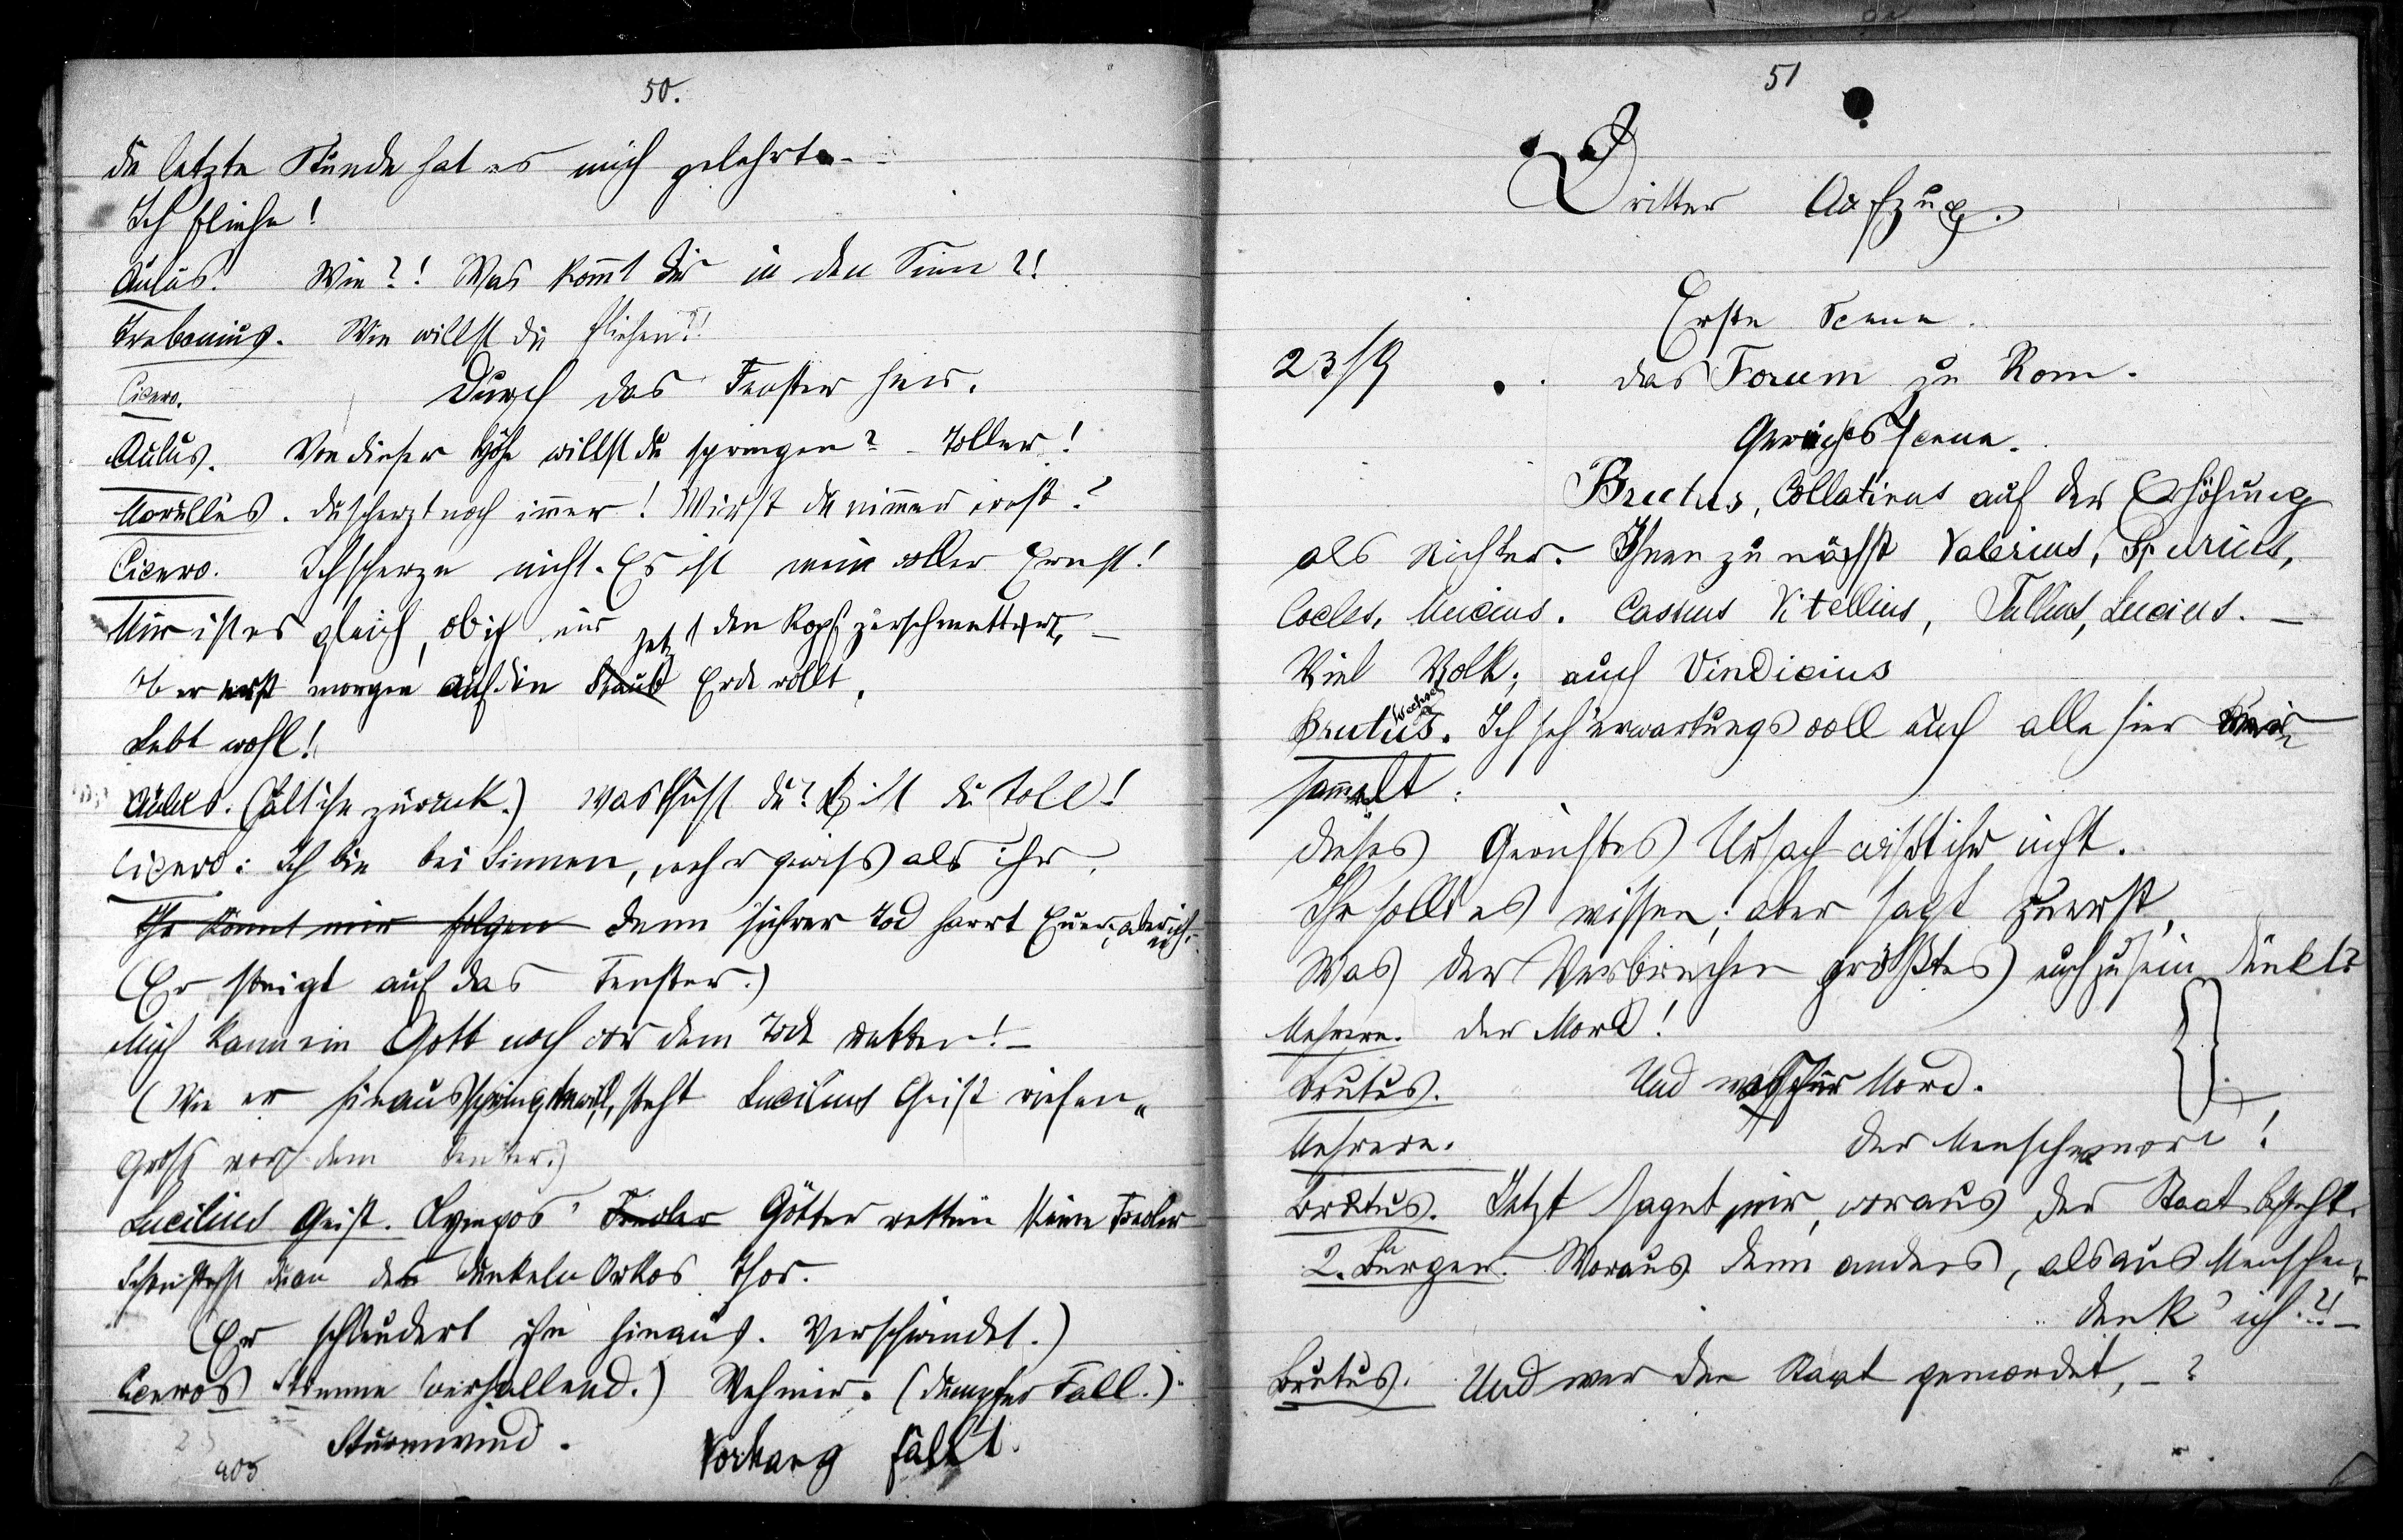 50.
die letzte Stunde hat es mich gelehrt. -
Ich fliehe!
Aulus. Wie?! Was kom̄t dir in den Sinn?!
Trebonius. Wie willst du fliehen?!
Cicero. Durch das Fenster hier.
Aulus. Von dieser Höh willst du springen? - Toller!
Marullus. du scherzt noch im̄er! Wirst du nimmer ernst?
Cicero. Ich scherze nicht. Es ist mein voller Ernst!
Mir ist es gleich, ob ich mir jetzt den Kopf zerschmettert, -
ob er erst morgen auf die Staub Erde rollt,
Lebt wohl!
Aulus. (hält ihn zurück.) Was thust du? Bist du toll!
Cicero: Ich bin bei Sinnen, mehr gewiss als ihr,
Ihr könnt mir folgen denn sichrer Tod harrt Eurer, aber ich.
(Er steigt auf das Fenster.)
Mich kann ein Gott noch vor dem Tode retten! -
(Wie er hinausspringen will, steht Lucilius Geist riesen„
gross vor dem Fenster.)
Lucilius Geist. Olympos' Frevler Götter retten keine Frevler
Schon stehst du an des dunkeln Orkos Thor.
(Er schleudert ihn hinaus. Verschwindet.)
Ciceros Stimme (verhallend.) Weh mir. (dumpfer Fall.)
Sturmwind. Vorhang fällt.
405
51
Dritter Aufzug.
Erste Scene.
23/9 das Forum zu Rom.
Gerichts Scene.
Brutus, Collatinus auf der Erhöhung
als Richter. Ihnen zunächst Valerius, Spurius,
Cocles, Mucius. Cassius Vitellius, Tullius, Lucius. -
Viel Volk; auch Vindicius
Brutus. Ich seh' erwartungsvoll euch alle hier
sam̄elt:
dieses Gerichtes Ursach wisst ihr nicht.
Ihr sollt es wissen; aber sagt zuerst,
Was der Verbrechen größtes euch zu sein dünkt?
Mehrere. der Mord!
Brutus. Und was für Mord.
Mehrere. der Menschenmord!
Brutus. Jetzt saget mir, woraus der Staat besteht.
2. Bürger. Woraus denn anders, als aus Menschen,
denk' ich?! -
Brutus. Und wer den Staat gemordet, - ?